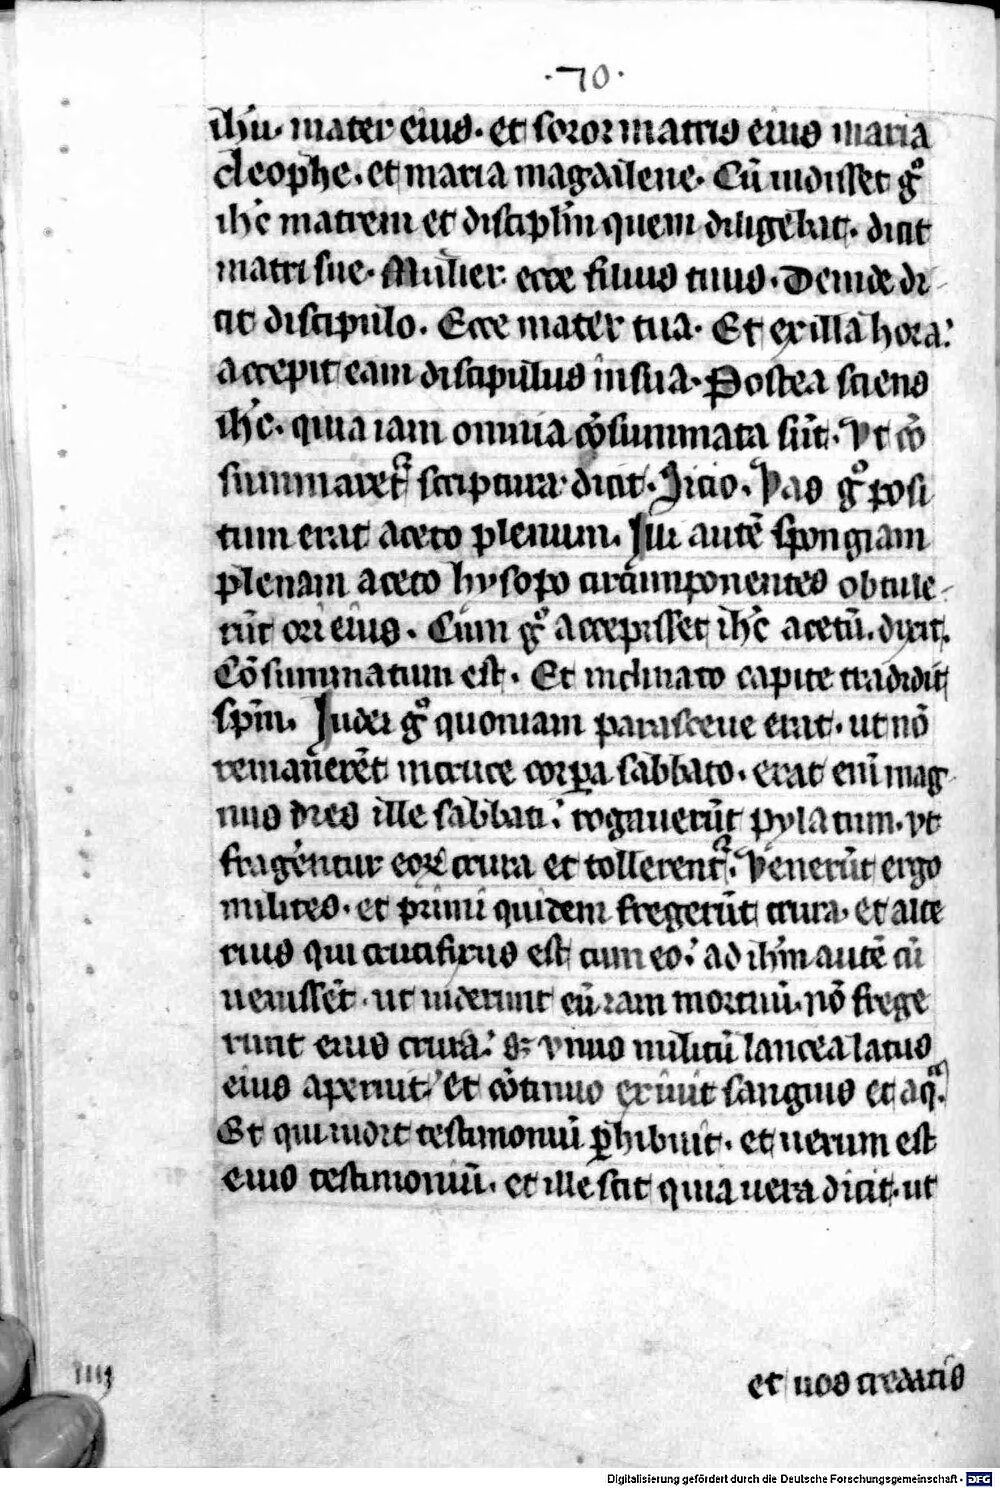 ·70·
ih̄u· mater eius· et soror matris eius maria
cleophe· et maria magdalene· Cū uidisset gͦ
ih̄c matrem et discipl̄m quem diligebat· dicit
matri sue· Mulier ecce filius tuus· Deinde di-
cit discipulo· Ecce mater tua· Et ex illa hora:
accepit eam discipulus in sua· Postea sciens
ih̄c· quia iam omnia cōsummata sūt· Vt cō
summaret᷑ scriptura dicit· Sicio· Vas gͦ posi
tum erat aceto plenum· Illi autē spongiam
plenam aceto hysopo circumponentes obtule-
rūt ori eius· Cum gͦ accepisset ih̄c acetū· dixit·
Cōsummatum est· Et inclinato capite tradidit
spm̄· Iudei gͦ quoniam parasceue erat· ut nō
remanerēt in cruce corꝑa sabbato· erat enī mag
nus dies ille sabbati: rogauerūt pylatum· vt
frangentur eoꝝ crura et tollerent᷑· Venerūt ergo
milites· et primi quidem fregerūt crura· et alte
rius qui crucifixus est cum eo: ad ih̄m autē cū
uenissēt· ut uiderunt eū iam mortuū· nō frege
runt eius crura: sꝫ vnus militū lancea latus
eius aperuit: et cōtinuo exiuit sanguis et aqͣ·
Et qui uidit testimoniū ꝑhibuit· et uerum est
eius testimoniū· et ille scit quia uera dicit· ut
et uos credatis
IIIJ
Digitalisierung gefördert durch die Deutsche Forschungsgemeinschaft - DFG